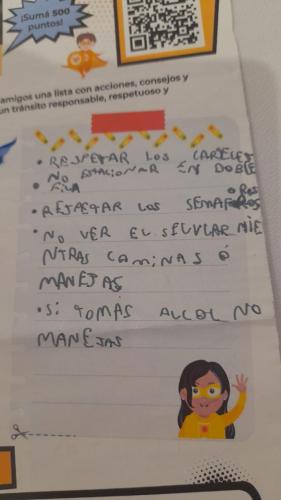 ¡Sumá 500
puntos!
amigos una lista con acciones, consejos y
un tránsito responsable, respetuoso y
• RESPETAR LOS CARTELES
NO ESTACIONAR EN DOBLE
• FILA
• RESPETAR LOS SEMAFOROS
• NO VER EL SELULAR MIE
NTRAS CAMINAS O
MANEJAS
• SI TOMAS ALCOL NO
MANEJAS